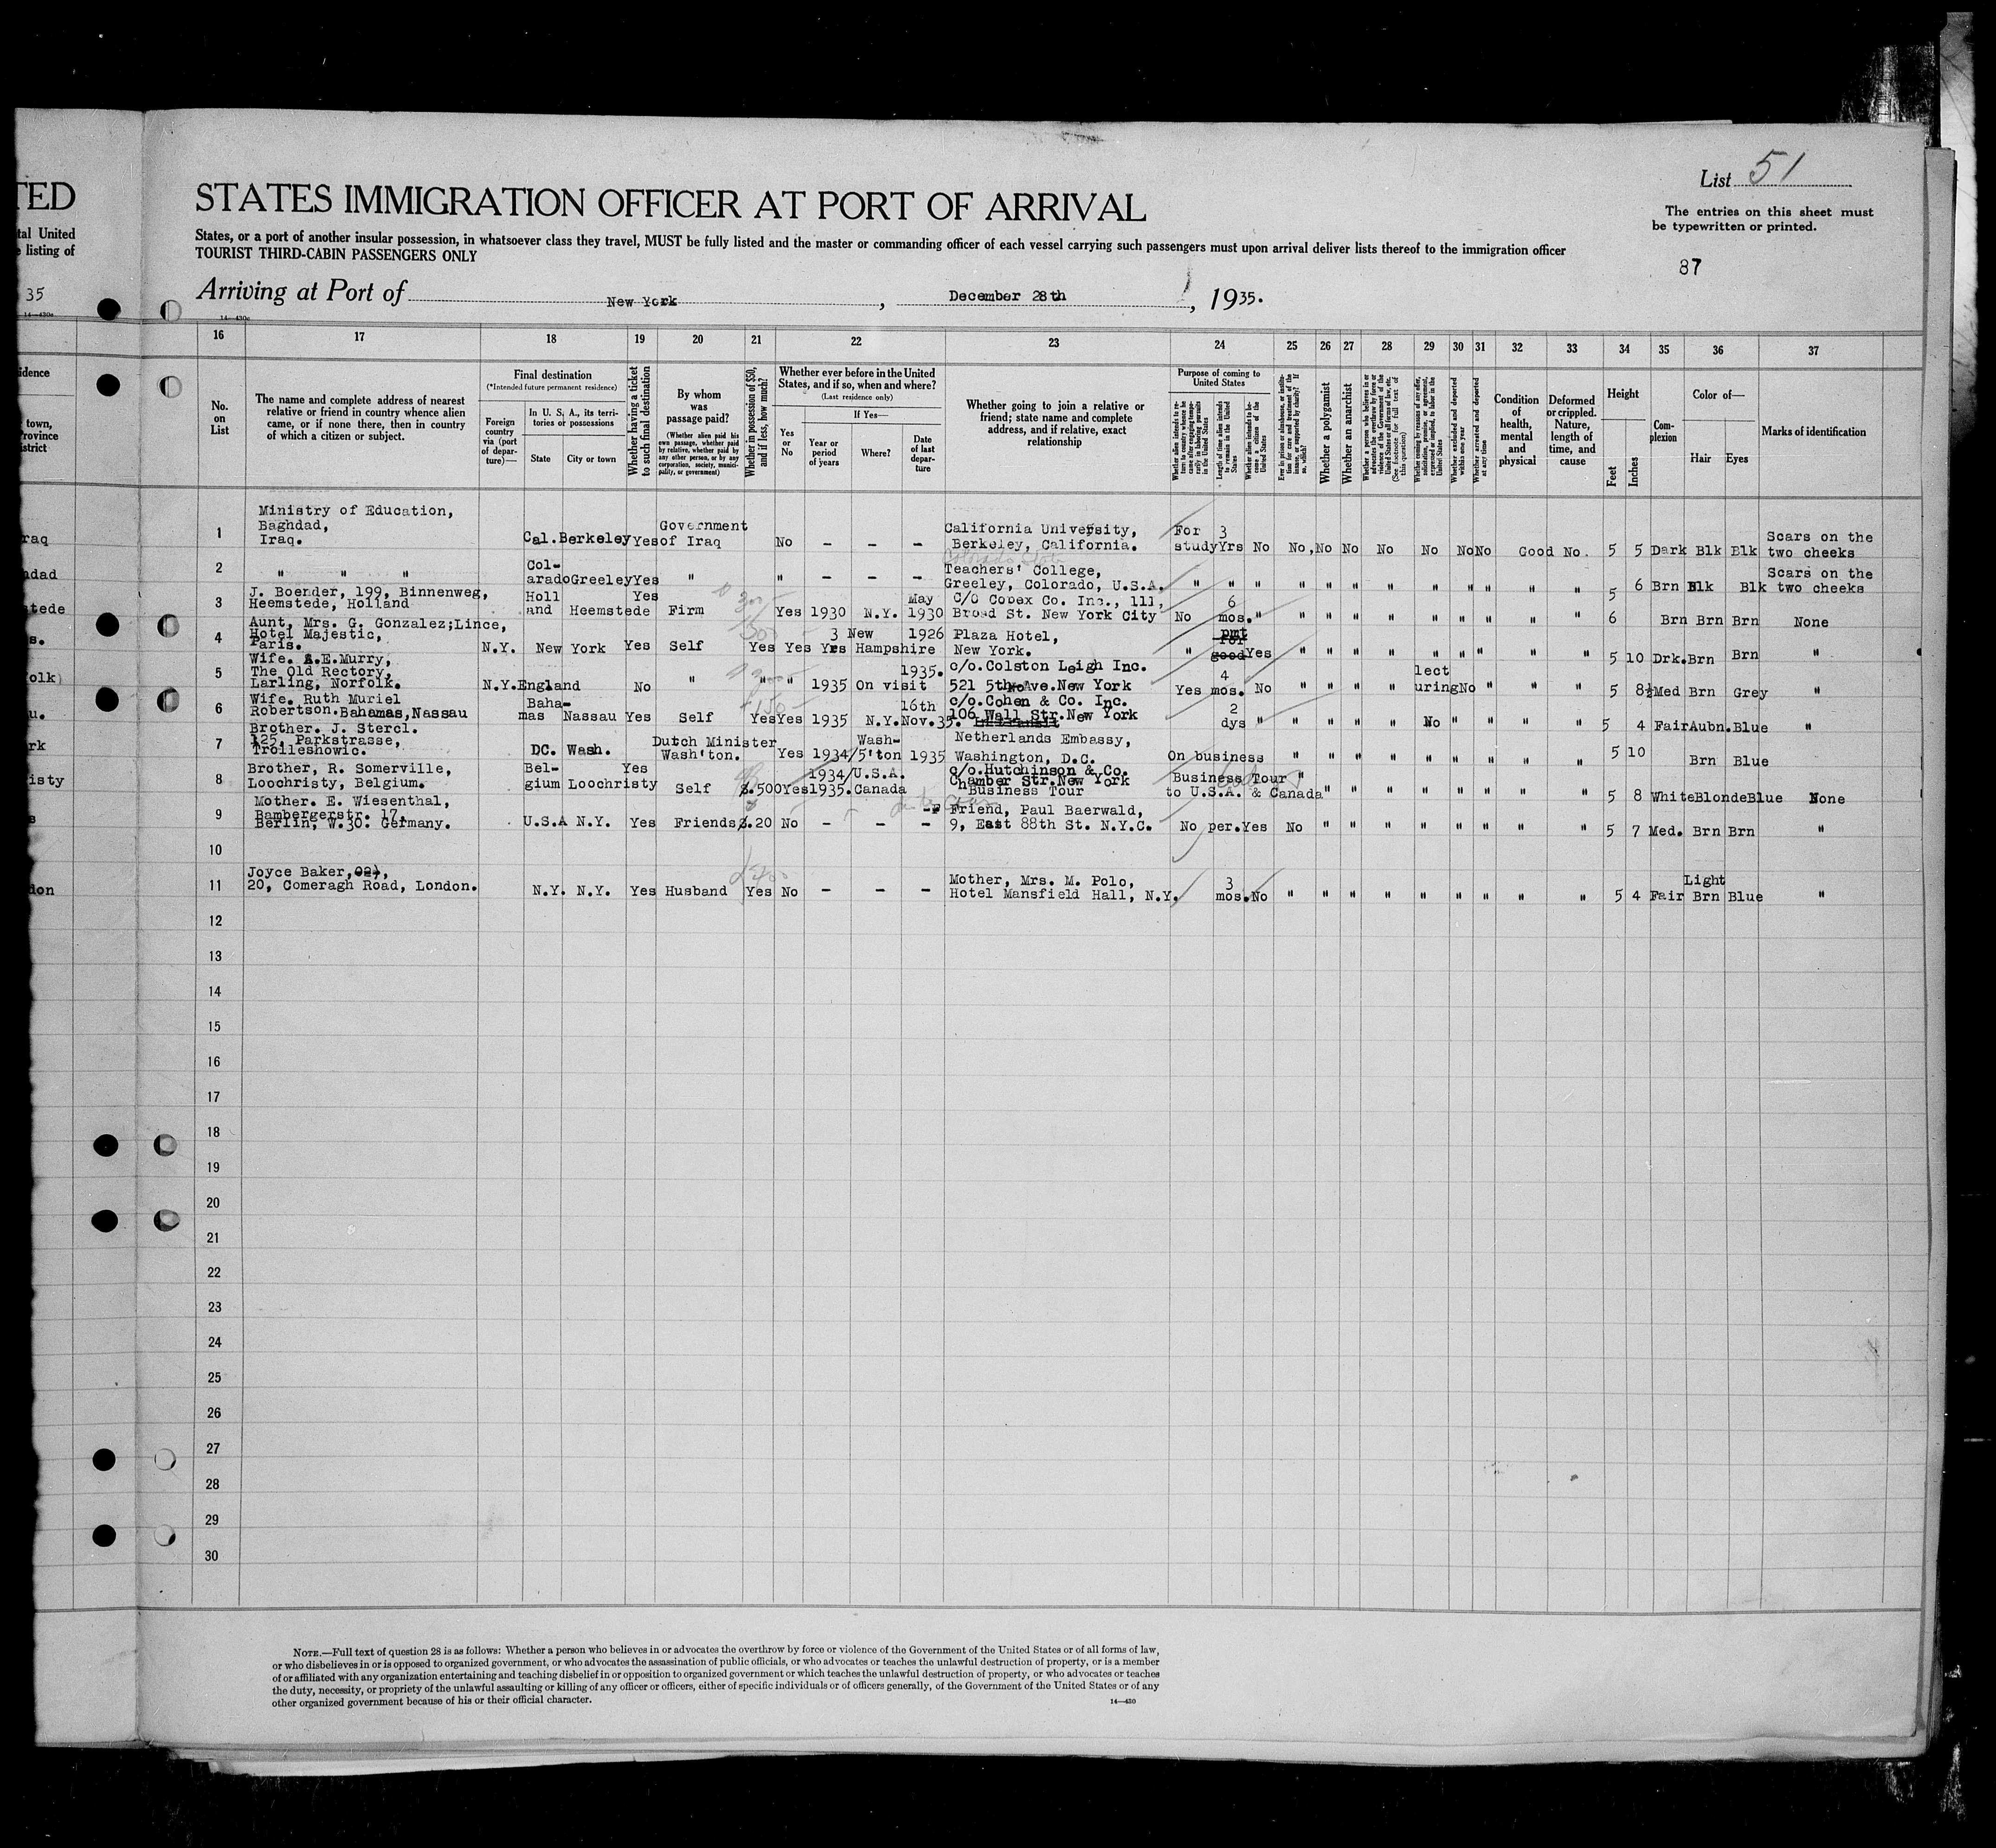 TED
STATES IMMIGRATION OFFICER AT PORT OF ARRIVAL
List 51
The entries on this sheet must
be typewritten or printed.
87
tal United
listing of
35
14—430c
States, or a port of another insular possession, in whatsoever class they travel, MUST be fully listed and the master or commanding officer of each vessel carrying such passengers must upon arrival deliver lists thereof to the immigration officer
TOURIST THIRD-CABIN PASSENGERS ONLY
Arriving at Port of New York, December 28th, 1935.
14—430c
16 17 18 19 20 21 22 23 24 25 26 27 28 29 30 31 32 33 34 35 36 37
No. on List
The name and complete address of nearest relative or friend in country whence alien came, or if none there, then in country of which a citizen or subject.
Final destination
(*Intended future permanent residence)
Foreign country via (port of departure)—
In U. S. A., its territories or possessions
State
City or town
Whether having a ticket to such final destination
By whom was passage paid?
(Whether alien paid his own passage, whether paid by relative, whether paid by any other person, or by any corporation, society, municipality, or government)
Whether in possession of $50, and if less, how much?
Whether ever before in the United States, and if so, when and where?
(Last residence only)
Yes or No
If Yes—
Year or period of years
Where?
Date of last departure
Whether going to join a relative or friend; state name and complete address, and if relative, exact relationship
Purpose of coming to United States
Whether alien intends to return to country whence he came after engaging temporarily in laboring pursuits in the United States
Length of time alien intends to remain in the United States
Whether alien intends to become a citizen of the United States
Ever in prison or almshouse, or institution for care and treatment of the insane, or supported by charity? If so, which?
Whether a polygamist
Whether an anarchist
(See footnote for full text of this question)
Whether excluded and deported within one year
Whether arrested and deported at any time
Condition of health, mental and physical
Deformed or crippled. Nature, length of time, and cause
Height
Feet
Inches
Complexion
Color of—
Hair
Eyes
Marks of identification
1 Ministry of Education, Baghdad, Iraq. Cal. Berkeley Yes Government of Iraq No - - - California University, Berkeley, California. For study 3 Yrs No No, No No No No No No Good No. 5 5 Dark Blk Blk Scars on the two cheeks
2 " " " Col-arado Greeley Yes " " - - - Teachers' College, Greeley, Colorado, U.S.A. " " " " " " " " " " " " 5 6 Brn Blk Blk Scars on the two cheeks
3 J. Boender, 199, Binnenweg, Heemstede, Holland Holl and Heemstede Yes Firm Yes 1930 N.Y. May 1930 C/O Cobex Co. Inc., 111, Broad St. New York City No 6 mos. " " " " " " " " " " 6 Brn Brn Brn None
4 Aunt, Mrs. G. Gonzalez; Lince, Hotel Majestic, Paris. N.Y. New York Yes Self Yes Yes 3 Yrs New Hampshire 1926 Plaza Hotel, New York. " pmt for good Yes " " " " " " " " " 5 10 Drk. Brn Brn "
5 Wife. A.E.Murry, The Old Rectory, Larling, Norfolk. N.Y. England No " " " 1935 On visit 1935. c/o.Colston Leigh Inc. 521 5th Ave.New York Yes 4 mos. No " " " " lect uring No " " " 5 8½ Med Brn Grey "
6 Wife. Ruth Muriel Robertson. Bahamas, Nassau Baha-mas Nassau Yes Self Yes Yes 1935 N.Y. 16th Nov. 35. c/o.Cohen & Co. Inc. 106 Wall Str.New York In transit No 2 dys " " " " " No " " " " 5 4 Fair Aubn. Blue "
7 Brother. J. Stercl. 125, Parkstrasse, Troileshowic. DC. Wash. Dutch Minister Wash'ton. Yes 1934/5 Wash-'ton 1935 Netherlands Embassy, Washington, D.C. On business " " " " " " " " " 5 10 Brn Blue
8 Brother, R. Somerville, Loochristy, Belgium. Bel-gium Loochristy Yes Self $.500 Yes 1934/1935. U.S.A. Canada c/o.Hutchinson & Co. Chamber Str.New York Business Tour Business Tour to U.S.A. & Canada " " " " " " " " " 5 8 White Blonde Blue None
9 Mother. E. Wiesenthal, Bambergerstr. 17, Berlin, W.30. Germany. U.S.A N.Y. Yes Friends $.20 No - - - Friend, Paul Baerwald, 9, East 88th St. N.Y.C. No per. Yes No " " " " " " " " 5 7 Med. Brn Brn "
10
11 Joyce Baker, 20, Comeragh Road, London. N.Y. N.Y. Yes Husband Yes No - - - Mother, Mrs. M. Polo, Hotel Mansfield Hall, N.Y. 3 mos. No " " " " " " " " " 5 4 Fair Light Brn Blue "
12
13
14
15
16
17
18
19
20
21
22
23
24
25
26
27
28
29
30
NOTE.—Full text of question 28 is as follows: Whether a person who believes in or advocates the overthrow by force or violence of the Government of the United States or of all forms of law,
or who disbelieves in or is opposed to organized government, or who advocates the assassination of public officials, or who advocates or teaches the unlawful destruction of property, or is a member
of or affiliated with any organization entertaining and teaching disbelief in or opposition to organized government or which teaches the unlawful destruction of property, or who advocates or teaches
the duty, necessity, or propriety of the unlawful assaulting or killing of any officer or officers, either of specific individuals or of officers generally, of the Government of the United States or of any
other organized government because of his or their official character.
14—430